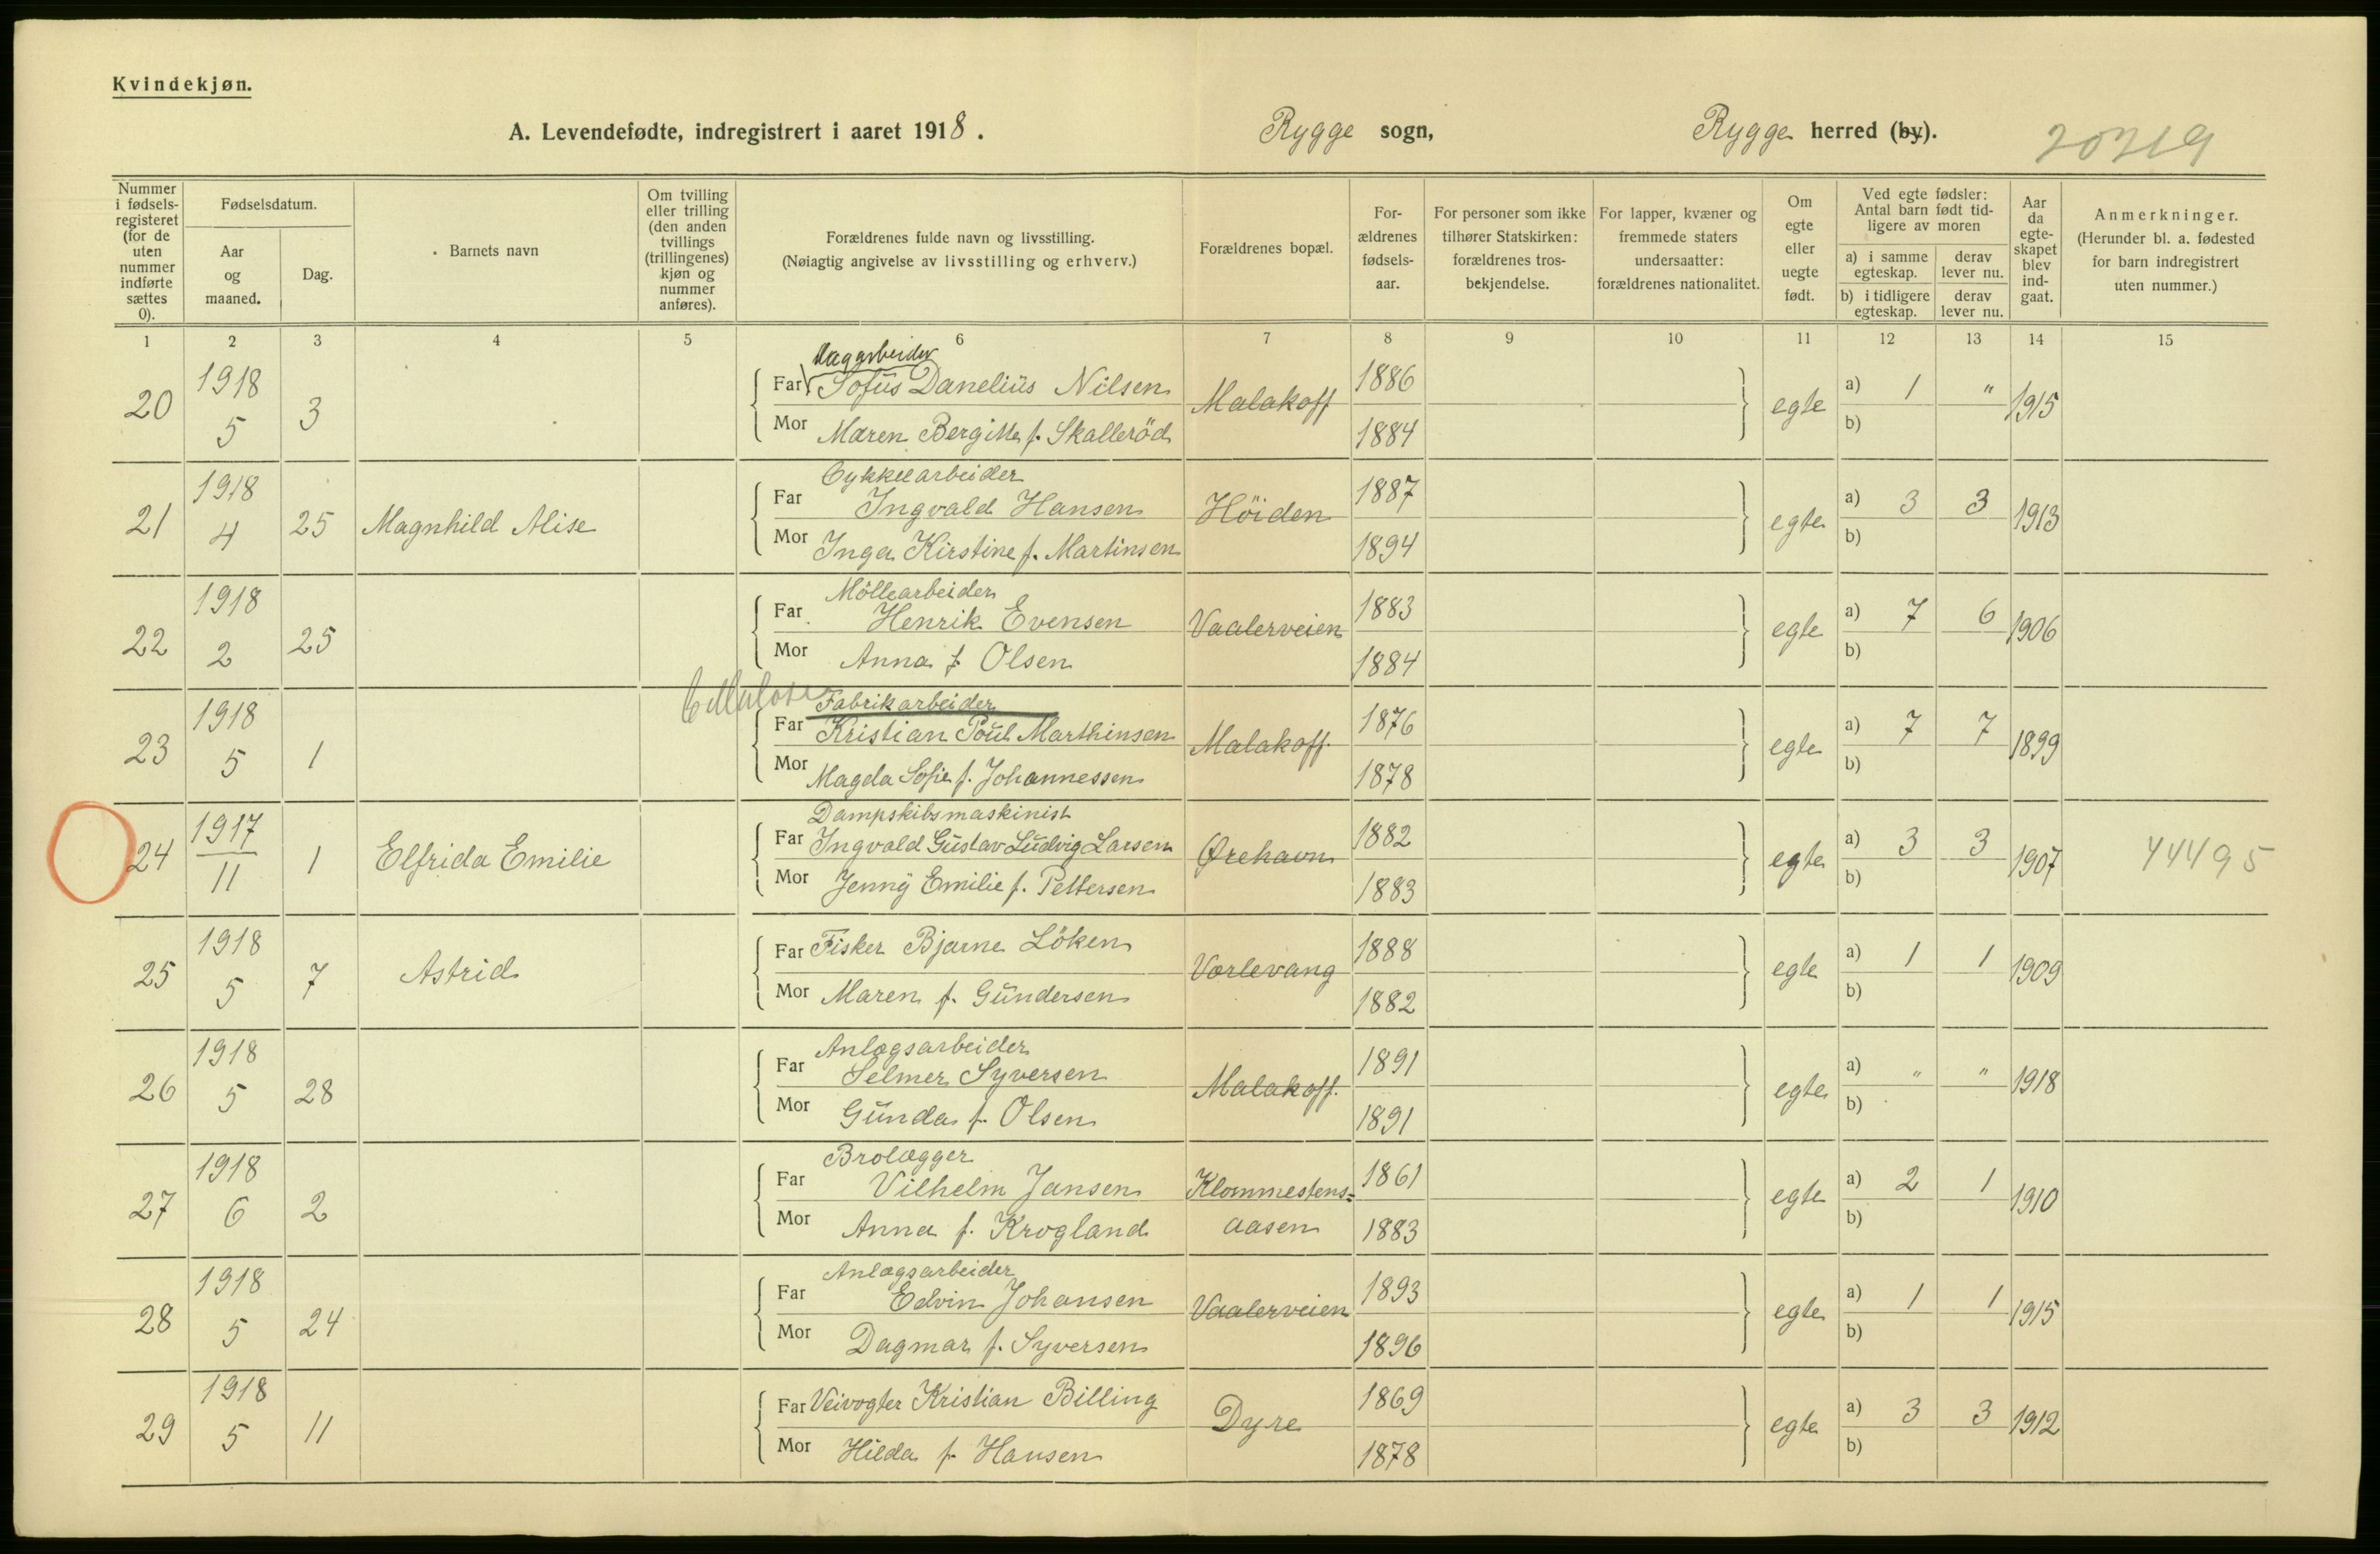 Kvindekjøn.
A. Levendefødte, indregistrert i aaret 1918.
Rygge sogn,
Rygge herred (by).
20219
Nummer i fødsels-registeret (for de uten nummer indførte sættes 0).
Fødselsdatum.
Aar og maaned.
Dag.
Barnets navn
Om tvilling eller trilling (den anden tvillings (trillingenes) kjøn og nummer anføres).
Forældrenes fulde navn og livsstilling.
(Nøiagtig angivelse av livsstilling og erhverv.)
Forældrenes bopæl.
For-ældrenes fødsels-aar.
For personer som ikke tilhører Statskirken: forældrenes tros-bekjendelse.
For lapper, kvæner og fremmede staters undersaatter: forældrenes nationalitet.
Om egte eller uegte født.
Ved egte fødsler: Antal barn født tid-ligere av moren
a) i samme egteskap.
derav lever nu.
b) i tidligere egteskap.
derav lever nu.
Aar da egte-skapet blev ind-gaat.
Anmerkninger.
(Herunder bl. a. fødested for barn indregistrert uten nummer.)
1 2 3 4 5 6 7 8 9 10 11 12 13 14 15
Daggarbeider
20 1918 5 3 Far Sofus Danelius Nilsen Malakoff 1886 egte a) 1 " 1915
Mor Maren Bergitte f. Skalleröd 1884 b)
Cykkelarbeider
21 1918 4 25 Magnhild Alise Far Ingvald Hansen Höiden 1887 egte a) 3 3 1913
Mor Inga Kirstine f. Martinsen 1894 b)
Möllearbeider
22 1918 2 25 Far Henrik Evensen Vaalerveien 1883 egte a) 7 6 1906
Mor Anna f. Olsen 1884 b)
Cellulose Fabrikarbeider
23 1918 5 1 Far Kristian Poul Marthinsen Malakoff. 1876 egte a) 7 7 1899
Mor Magda Sofie f. Johannessen 1878 b)
Dampskibsmaskinist
24 1917 11 1 Elfrida Emilie Far Ingvald Gustav Ludvig Larsen Ørehavn 1882 egte a) 3 3 1907 44495
Mor Jenny Emilie f. Pettersen 1883 b)
25 1918 5 7 Astrid Far Fisker Bjarne Löken Vorlevang 1888 egte a) 1 1 1909
Mor Maren f. Gundersen 1882 b)
Anlægsarbeider
26 1918 5 28 Far Selmer Syversen Malakoff. 1891 egte a) " " 1918
Mor Gunda f. Olsen 1891 b)
Brolægger
27 1918 6 2 Far Vilhelm Jansen Klommestens- 1861 egte a) 2 1 1910
Mor Anna f. Krogland aasen 1883 b)
Anlægsarbeider
28 1918 5 24 Far Edvin Johansen Vaalerveien 1893 egte a) 1 1 1915
Mor Dagmar f. Syversen 1896 b)
29 1918 5 11 Far Veivogter Kristian Billing Dyre 1869 egte a) 3 3 1912
Mor Hilda f. Hansen 1878 b)